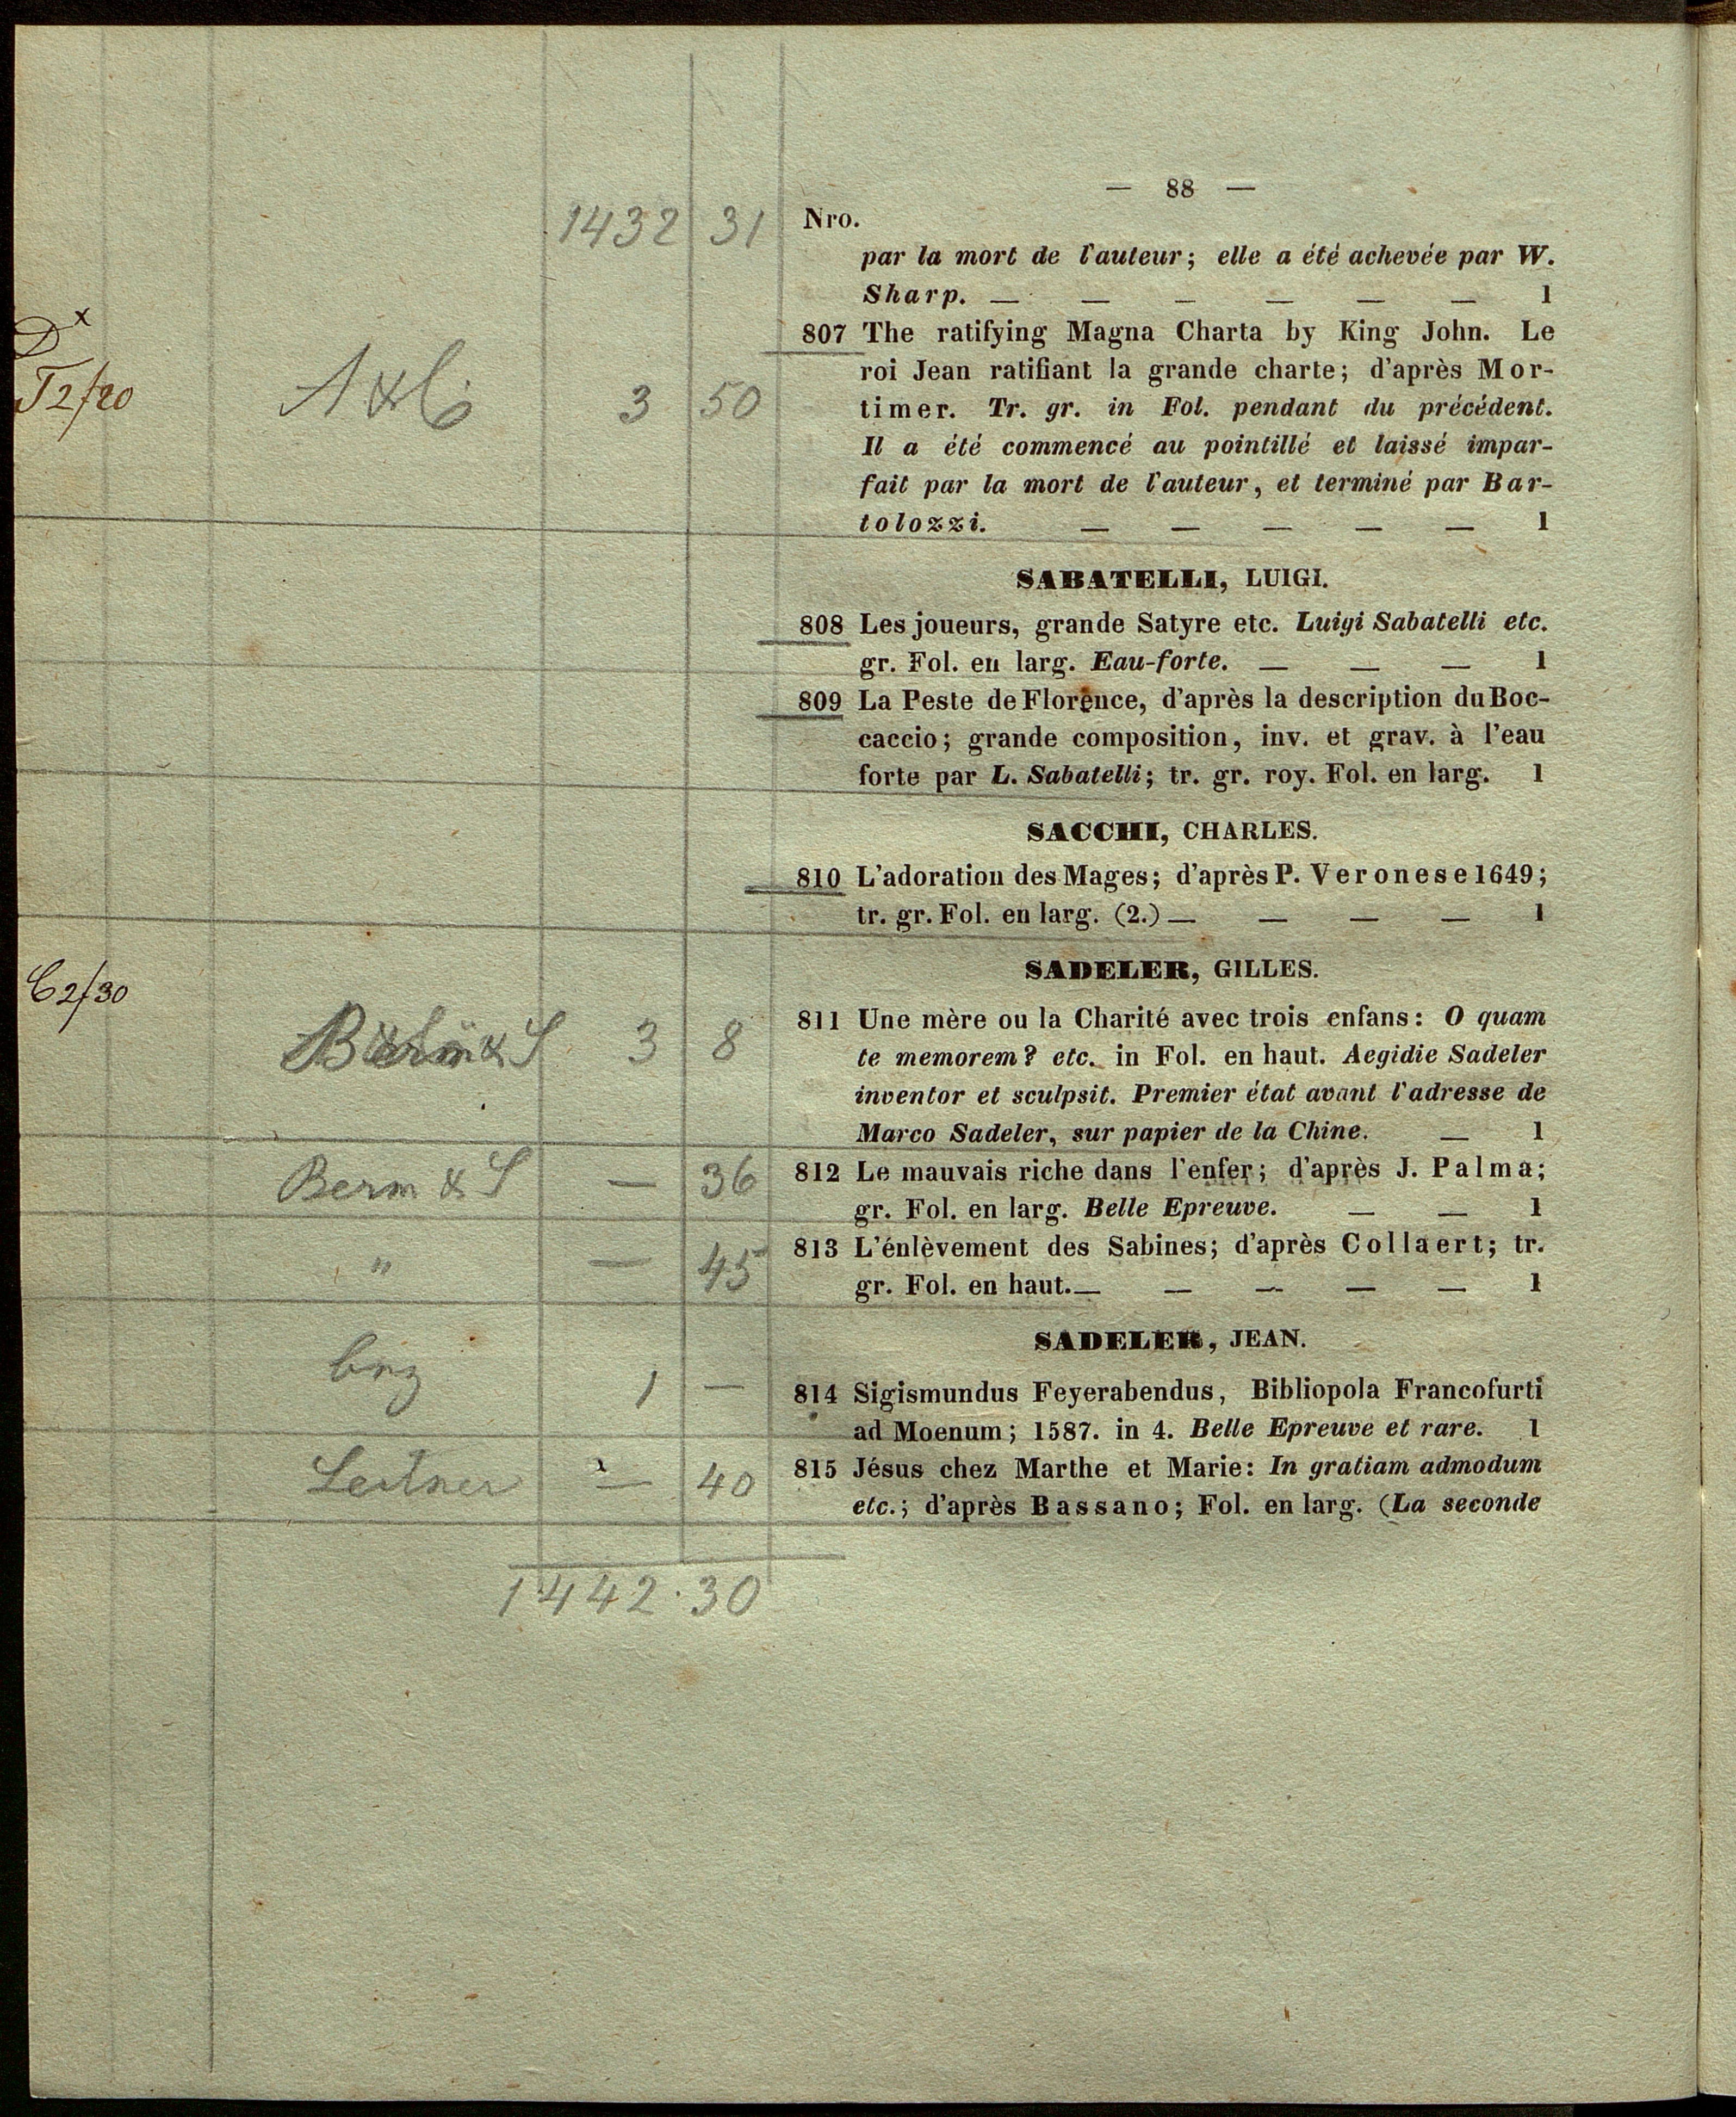 — 88 —
1432 31
Nro.
par la mort de l'auteur; elle a été achevée par W.
Sharp. — — — — — — 1
D x
T2/20
A & C
3 50
807 The ratifying Magna Charta by King John. Le
roi Jean ratifiant la grande charte; d'après Mor-
timer. Tr. gr. in Fol. pendant du précédent.
Il a été commencé au pointillé et laissé impar-
fait par la mort de l'auteur, et terminé par Bar-
tolozzi. — — — — — 1
SABATELLI, LUIGI.
808 Les joueurs, grande Satyre etc. Luigi Sabatelli etc.
gr. Fol. en larg. Eau-forte. — — — 1
809 La Peste de Florence, d'après la description du Boc-
caccio; grande composition, inv. et grav. à l'eau
forte par L. Sabatelli; tr. gr. roy. Fol. en larg. 1
SACCHI, CHARLES.
810 L'adoration des Mages; d'après P. Veronese 1649;
tr. gr. Fol. en larg. (2.) — — — — 1
SADELER, GILLES.
C2/30
& S 3 8
811 Une mère ou la Charité avec trois enfans: O quam
te memorem? etc. in Fol. en haut. Aegidie Sadeler
inventor et sculpsit. Premier état avant l'adresse de
Marco Sadeler, sur papier de la Chine. — 1
Berm & S — 36
812 Le mauvais riche dans l'enfer; d'après J. Palma;
gr. Fol. en larg. Belle Epreuve. — — 1
" — 45
813 L'énlèvement des Sabines; d'après Collaert; tr.
gr. Fol. en haut. — — — — — 1
SADELER, JEAN.
1 —
814 Sigismundus Feyerabendus, Bibliopola Francofurti
ad Moenum; 1587. in 4. Belle Epreuve et rare. 1
Leitner — 40
815 Jésus chez Marthe et Marie: In gratiam admodum
etc.; d'après Bassano; Fol. en larg. (La seconde
1442.30